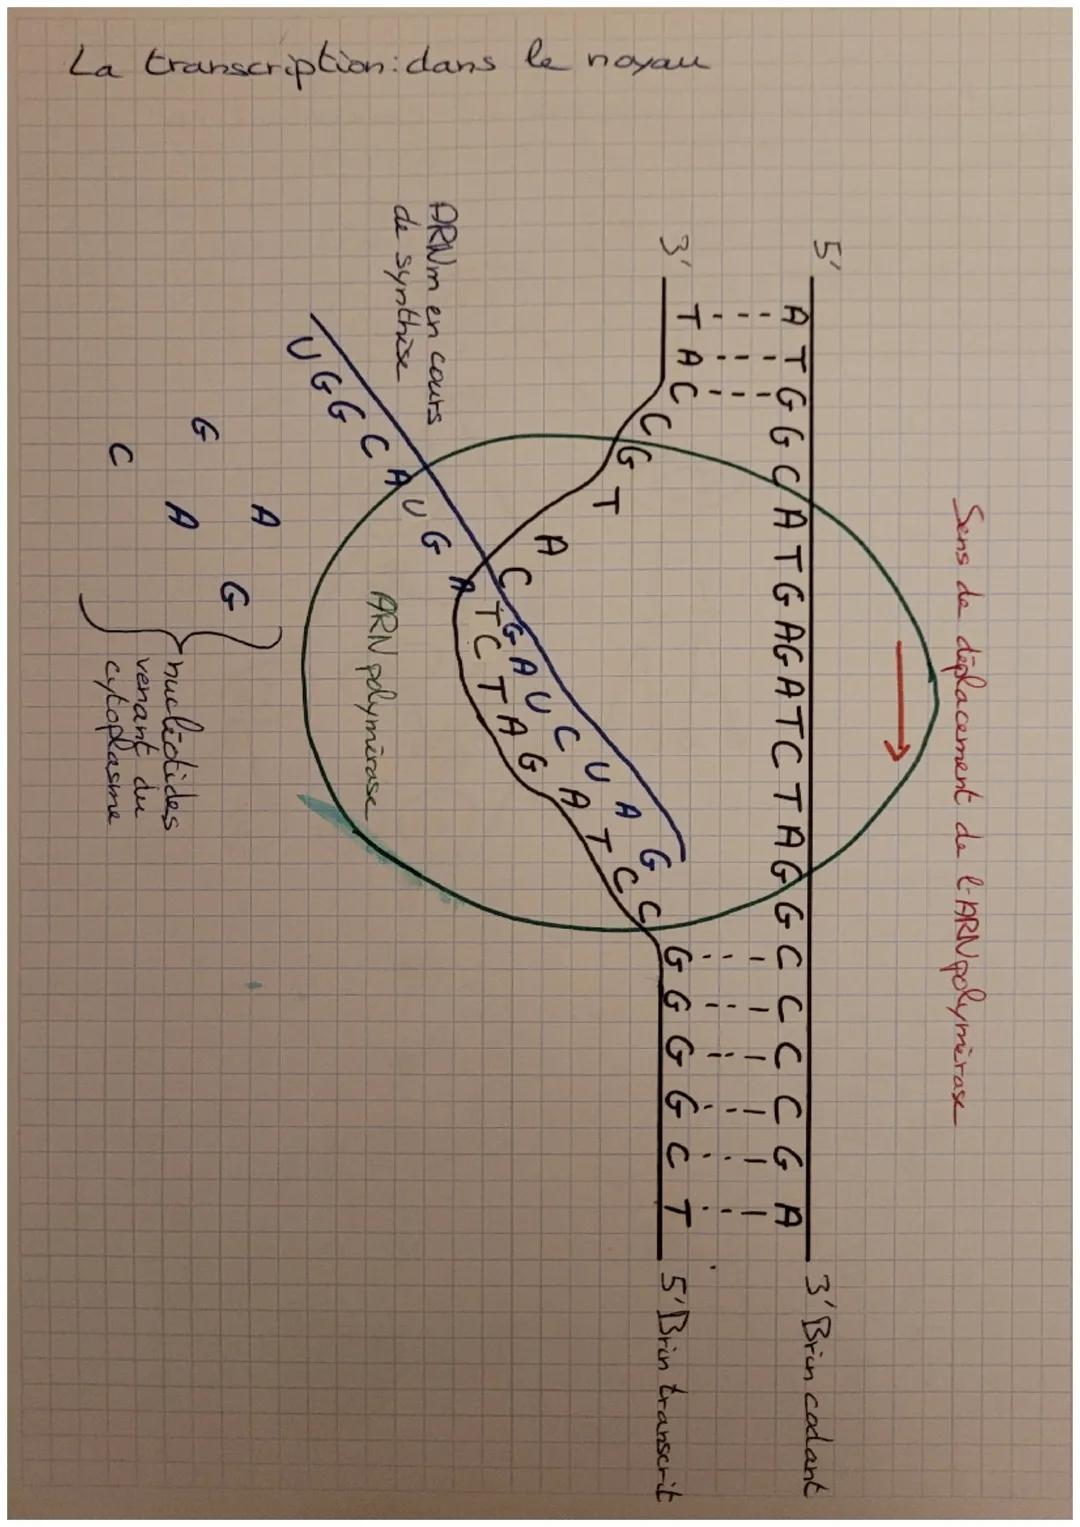 La transcription: dans le noyau
Sens de déplacement de l'ARN polymérase
5' A T G G C A T G A G A T C T A G G C C C C G A 3' Brin codant
3' T A C C G T A C T C T A G A T C C G G G G C T 5' Brin transcrit
ARNm en cours
de synthèse
U G G C A U G A G A U C U A G
ARN polymérase
G A
C A G
nucléotides
venant du
cytoplasme